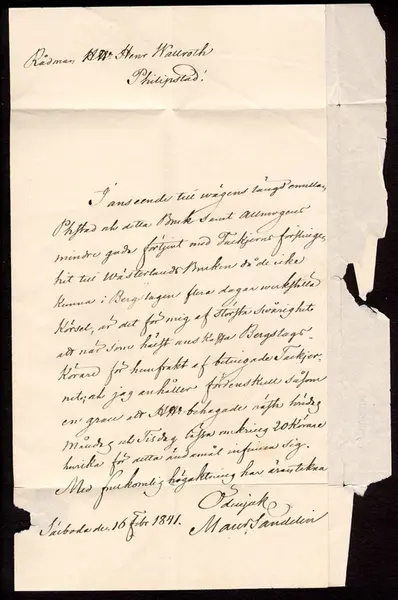 Rådman HWr Henr Wallroth
Philipstad!
I anseende till wägens längd emellan
Phstad och detta Bruk samt Allmogens
mindre goda förtjent med Tackjerns forslinge
hit till Wästerlands Bruken då de icke
kunna i Bergslagen flera dagar werkställa
Körsel, är det för mig af största Swårighet
att när som hälst anskaffa Bergslags-
Körare för hemfrakt af betingade Tackjer-
net, och jag anhåller fördenskull såsom
en grace att HWr behagade nästk. Lördag
Måndag och Tisdag låta omkring 20 Körare
hwilka för detta ändamål infinna sig.
Med fullkomlig högaktning har äran teckna
Ödmjuk
Saxboda den 16 Febr 1841. Maur. Sandelin